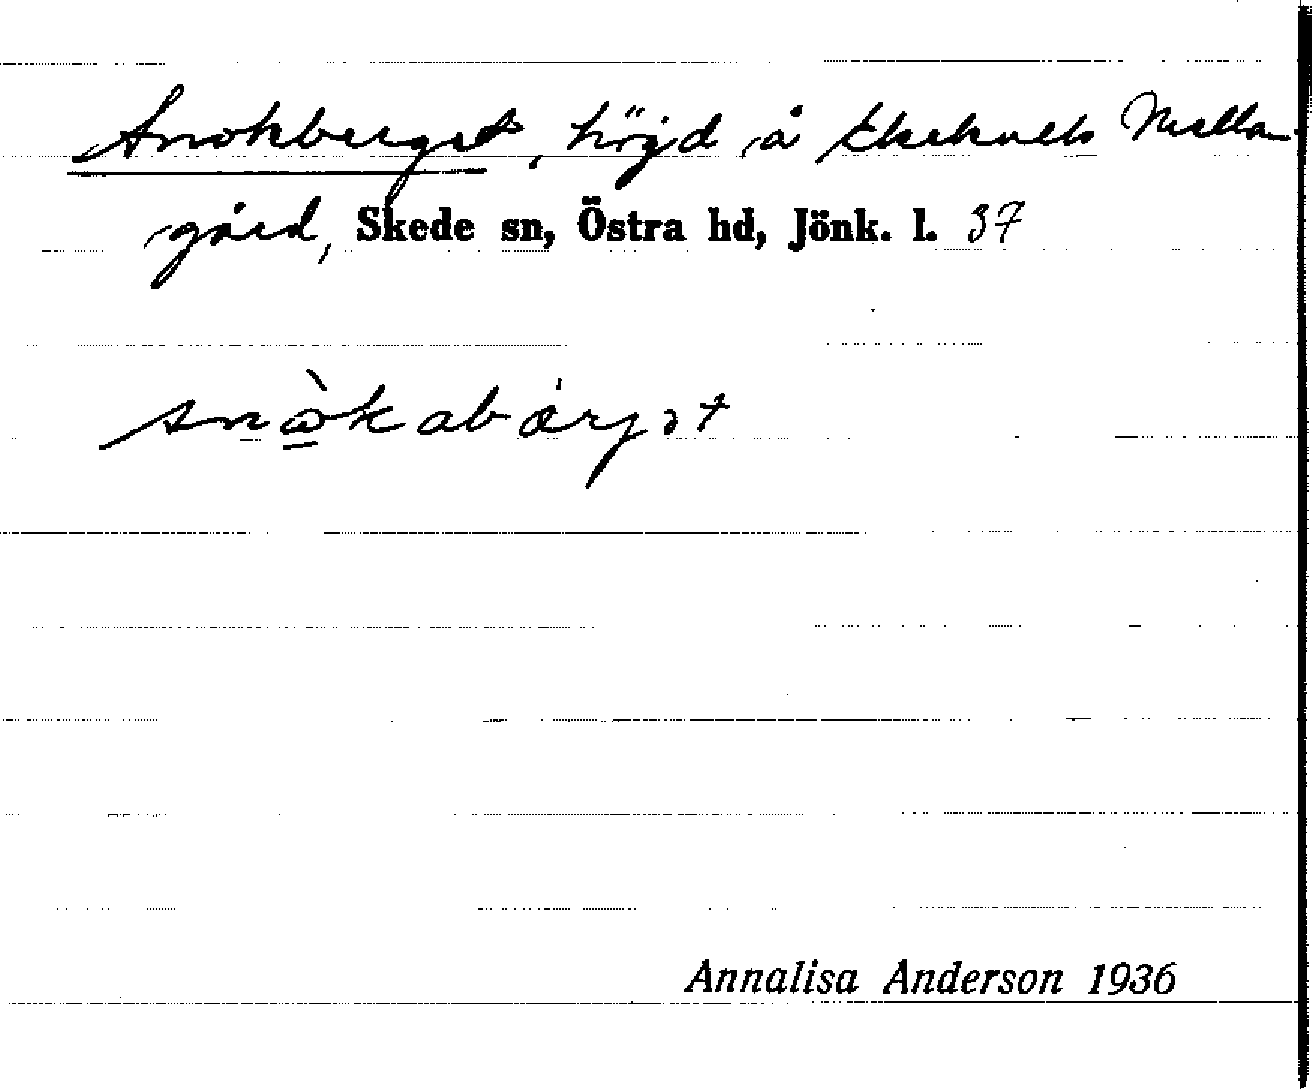 Snokberget, höjd å Ekekulls Mellan-
gård, Skede sn, Östra hd, Jönk. l. 37
snὼ̲kabærjət
Annalisa Anderson 1936